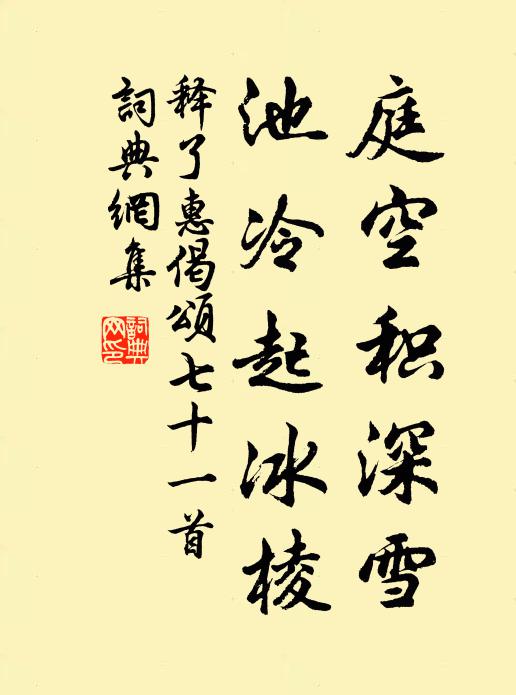 庭空积深雪
池冷起冰棱
释了惠偈頌七十一首
詞典網集
詞典
网印